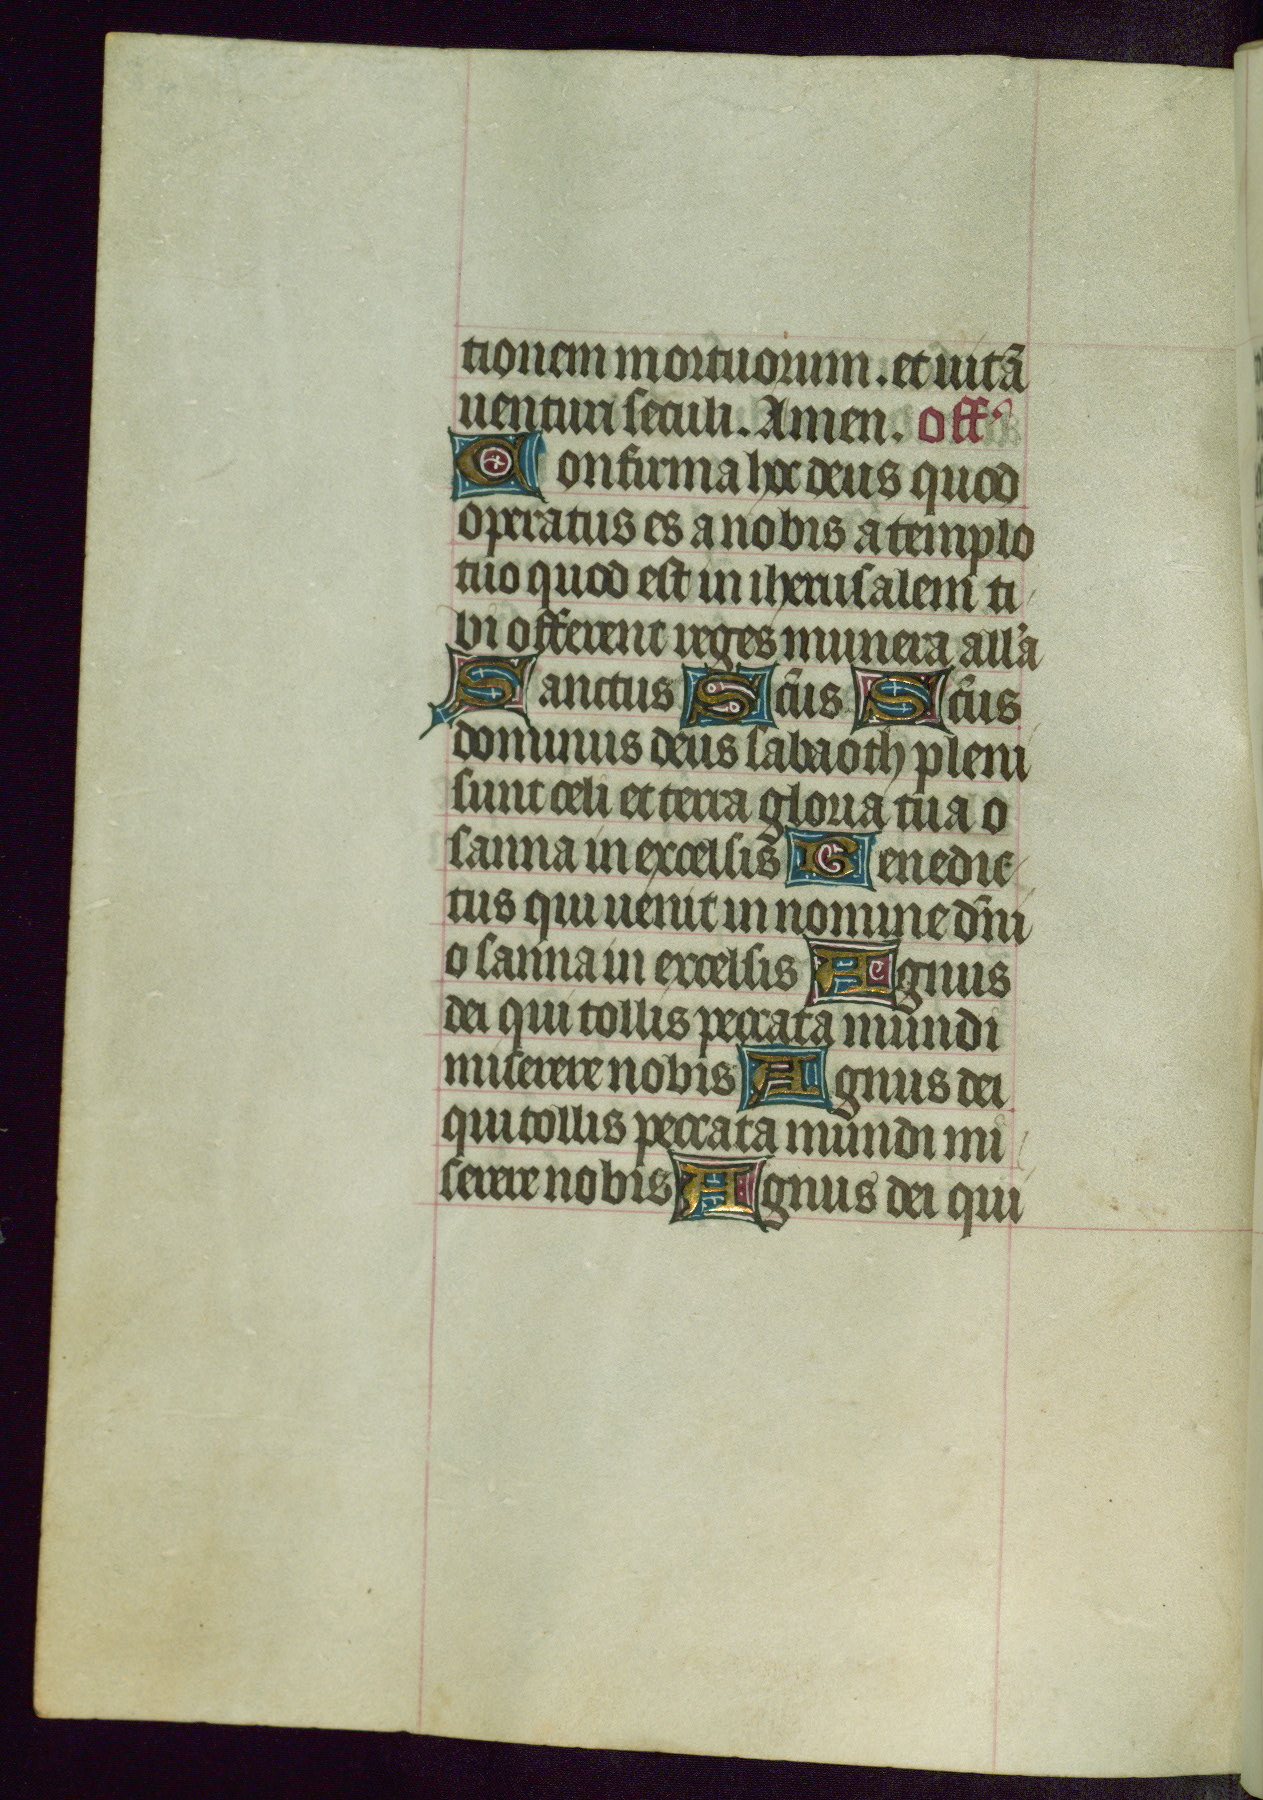 tionem mortuorum. et uitã
uenturi seculi. Amen. off᾽
Confirma hoc deus quod
operatus es a nobis a templo
tuo quod est in iherusalem ti
bi offerent reges munera all'a
Sanctus Sc̃us Sc̃us
dominus deus sabaoth pleni
sunt celi et terra gloria tua o
sanna in excelsis Benedic
tus qui uenit in nomine dñi
o sanna in excelsis Agnus
dei qui tollis peccata mundi
miserere nobis Agnus dei
qui tollis peccata mundi mi
serere nobis Agnus dei qui